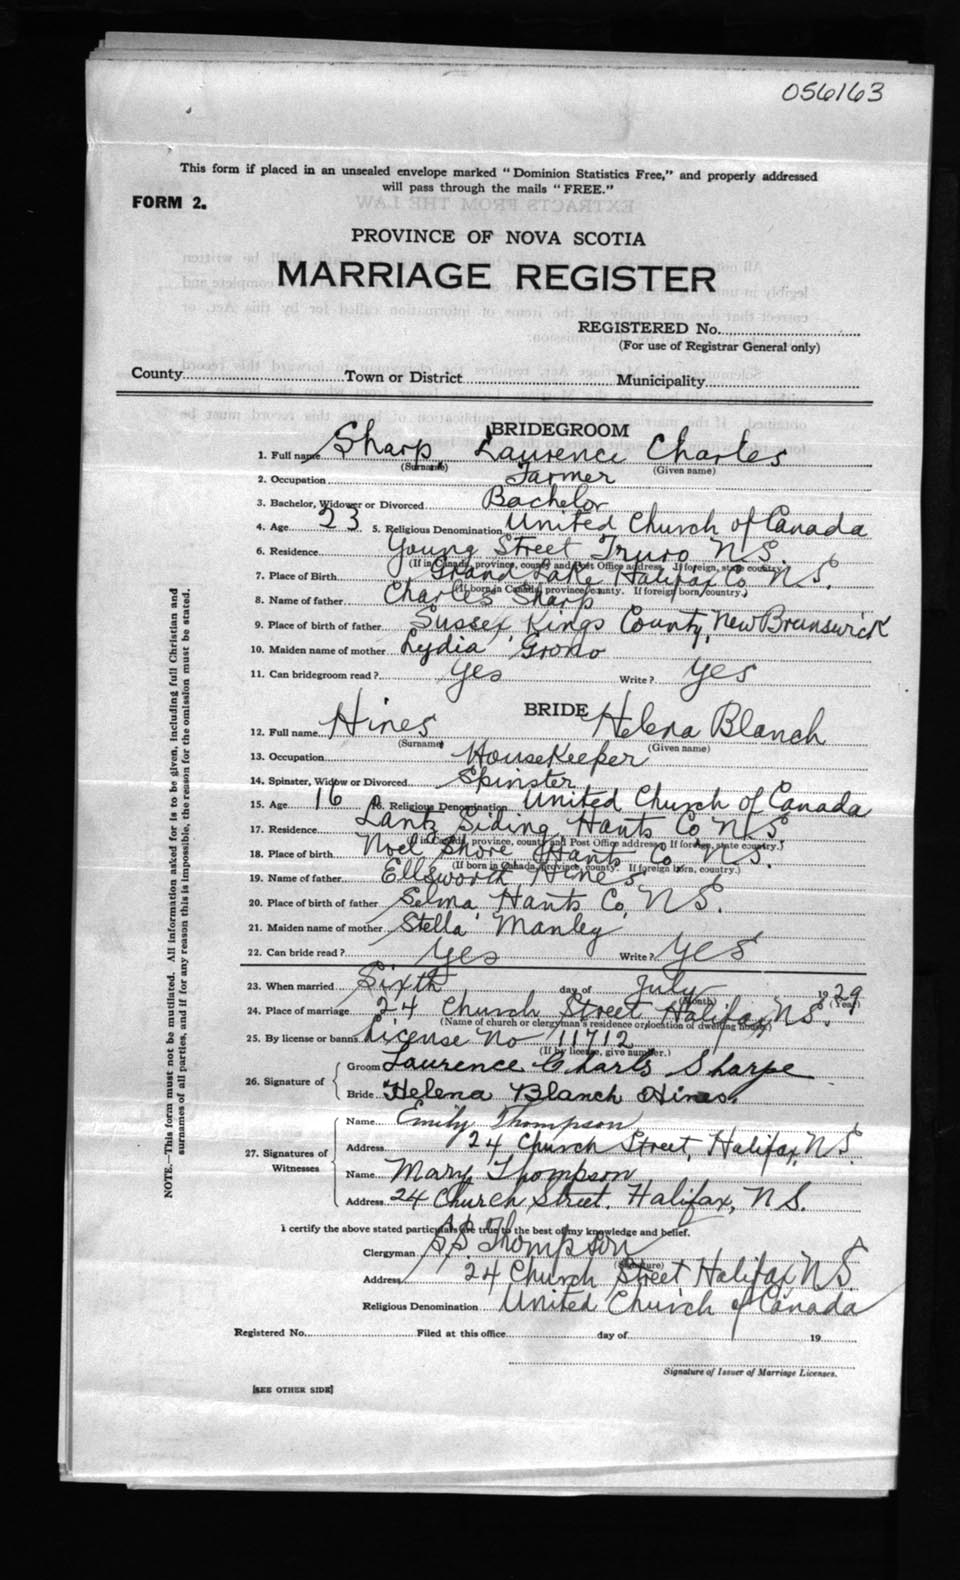 056163
This form if placed in an unsealed envelope marked "Dominion Statistics Free," and properly addressed
will pass through the mails "FREE."
FORM 2.
PROVINCE OF NOVA SCOTIA
MARRIAGE REGISTER
REGISTERED No.
(For use of Registrar General only)
County Town or District Municipality
BRIDEGROOM
1. Full name Sharp Laurence Charles
(Surname) (Given name)
2. Occupation Farmer
3. Bachelor, Widower or Divorced Bachelor
4. Age 23 5. Religious Denomination United Church of Canada
6. Residence Young Street Truro N.S.
(If in Canada, province, county and Post Office address. If foreign, state country.)
7. Place of Birth Grand Lake Halifax Co N.S.
(If born in Canada, province, county. If foreign born, country.)
8. Name of father Charles Sharp
9. Place of birth of father Sussex, Kings County, New Brunswick
10. Maiden name of mother Lydia Grono
11. Can bridegroom read? Yes Write? Yes
BRIDE
12. Full name Hines Helena Blanch
(Surname) (Given name)
13. Occupation HouseKeeper
14. Spinster, Widow or Divorced Spinster
15. Age 16 16. Religious Denomination United Church of Canada
17. Residence Lantz Siding Hants Co N.S
(If in Canada, province, county and Post Office address. If foreign, state country.)
18. Place of birth Noel Shore Hants Co N.S.
(If born in Canada, province, county. If foreign born, country.)
19. Name of father Ellsworth Hines
20. Place of birth of father Selma Hants Co, N.S.
21. Maiden name of mother Stella Manley
22. Can bride read? Yes Write? Yes
23. When married Sixth day of July 1929
(Month) (Year)
24. Place of marriage 24 Church Street Halifax N.S.
(Name of church or clergyman's residence or location of dwelling house)
25. By license or banns License No 11712
(If by license, give number.)
26. Signature of Groom Laurence Charls Sharpe
Bride Helena Blanch Hines.
27. Signatures of Witnesses Name Emily Thompson
Address 24 Church Street, Halifax, N.S.
Name Mary Thompson
Address 24 Church Street. Halifax, N.S.
I certify the above stated particulars are true to the best of my knowledge and belief.
Clergyman Thompson
(Signature)
Address 24 Church Street Halifax N.S.
Religious Denomination United Church of Canada
Registered No. Filed at this office day of 19
Signature of Issuer of Marriage Licenses.
[SEE OTHER SIDE]
NOTE.—This form must not be mutilated. All information asked for is to be given, including full Christian and
surnames of all parties, and if for any reason this is impossible, the reason for the omission must be stated.